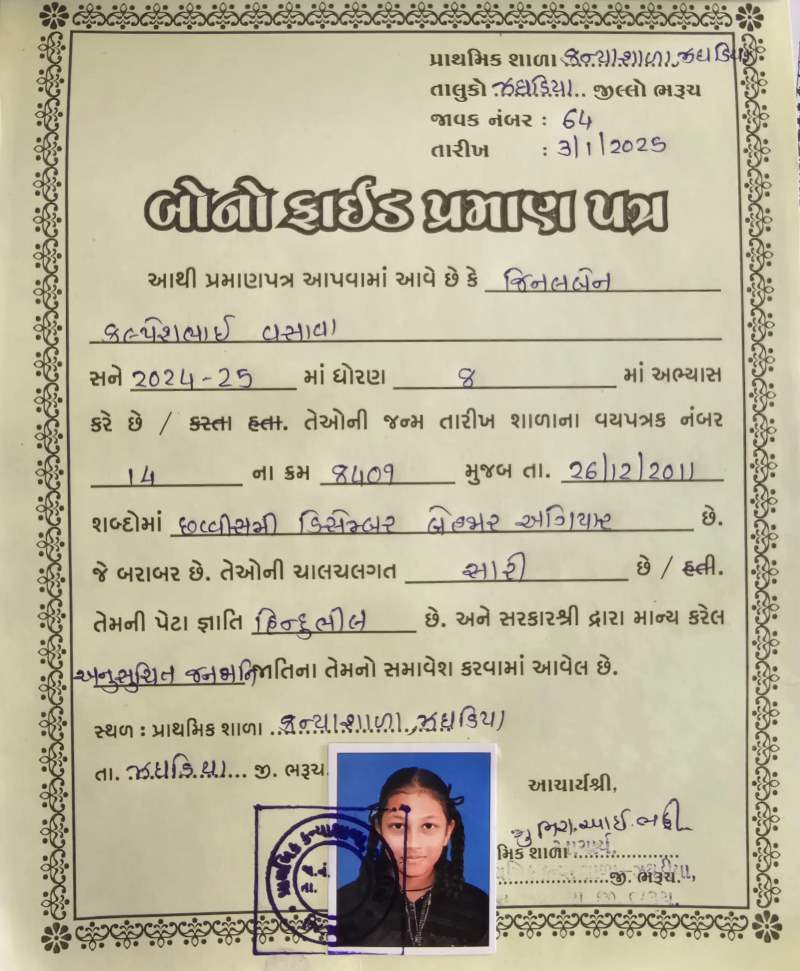 પ્રાથમિક શાળા કન્યાશાળા, ઝઘડિયા
તાલુકો ઝઘડિયા.. જીલ્લો ભરૂચ
જાવક નંબર : 64
તારીખ : 3/1/2025
બોનોફાઈડ પ્રમાણ પત્ર
આથી પ્રમાણપત્ર આપવામાં આવે છે કે જિનલબેન
કલ્પેશભાઈ વસાવા
સને 2024-25 માં ધોરણ 8 માં અભ્યાસ
કરે છે / કરતા હતા. તેઓની જન્મ તારીખ શાળાના વયપત્રક નંબર
14 ના ક્રમ 8409 મુજબ તા. 26/12/2011
શબ્દોમાં છવ્વીસમી ડિસેમ્બર બેહજાર અગિયાર છે.
જે બરાબર છે. તેઓની ચાલચલગત સારી છે / હતી.
તેમની પેટા જ્ઞાતિ હિન્દુભીલ છે. અને સરકારશ્રી દ્વારા માન્ય કરેલ
અનુસુચિત જનજાતિના તેમનો સમાવેશ કરવામાં આવેલ છે.
સ્થળ : પ્રાથમિક શાળા કન્યાશાળા, ઝઘડિયા
તા. ઝઘડિયા... જી. ભરૂચ
આચાર્યશ્રી,
મિક શાળા
જી. ભરૂચ.